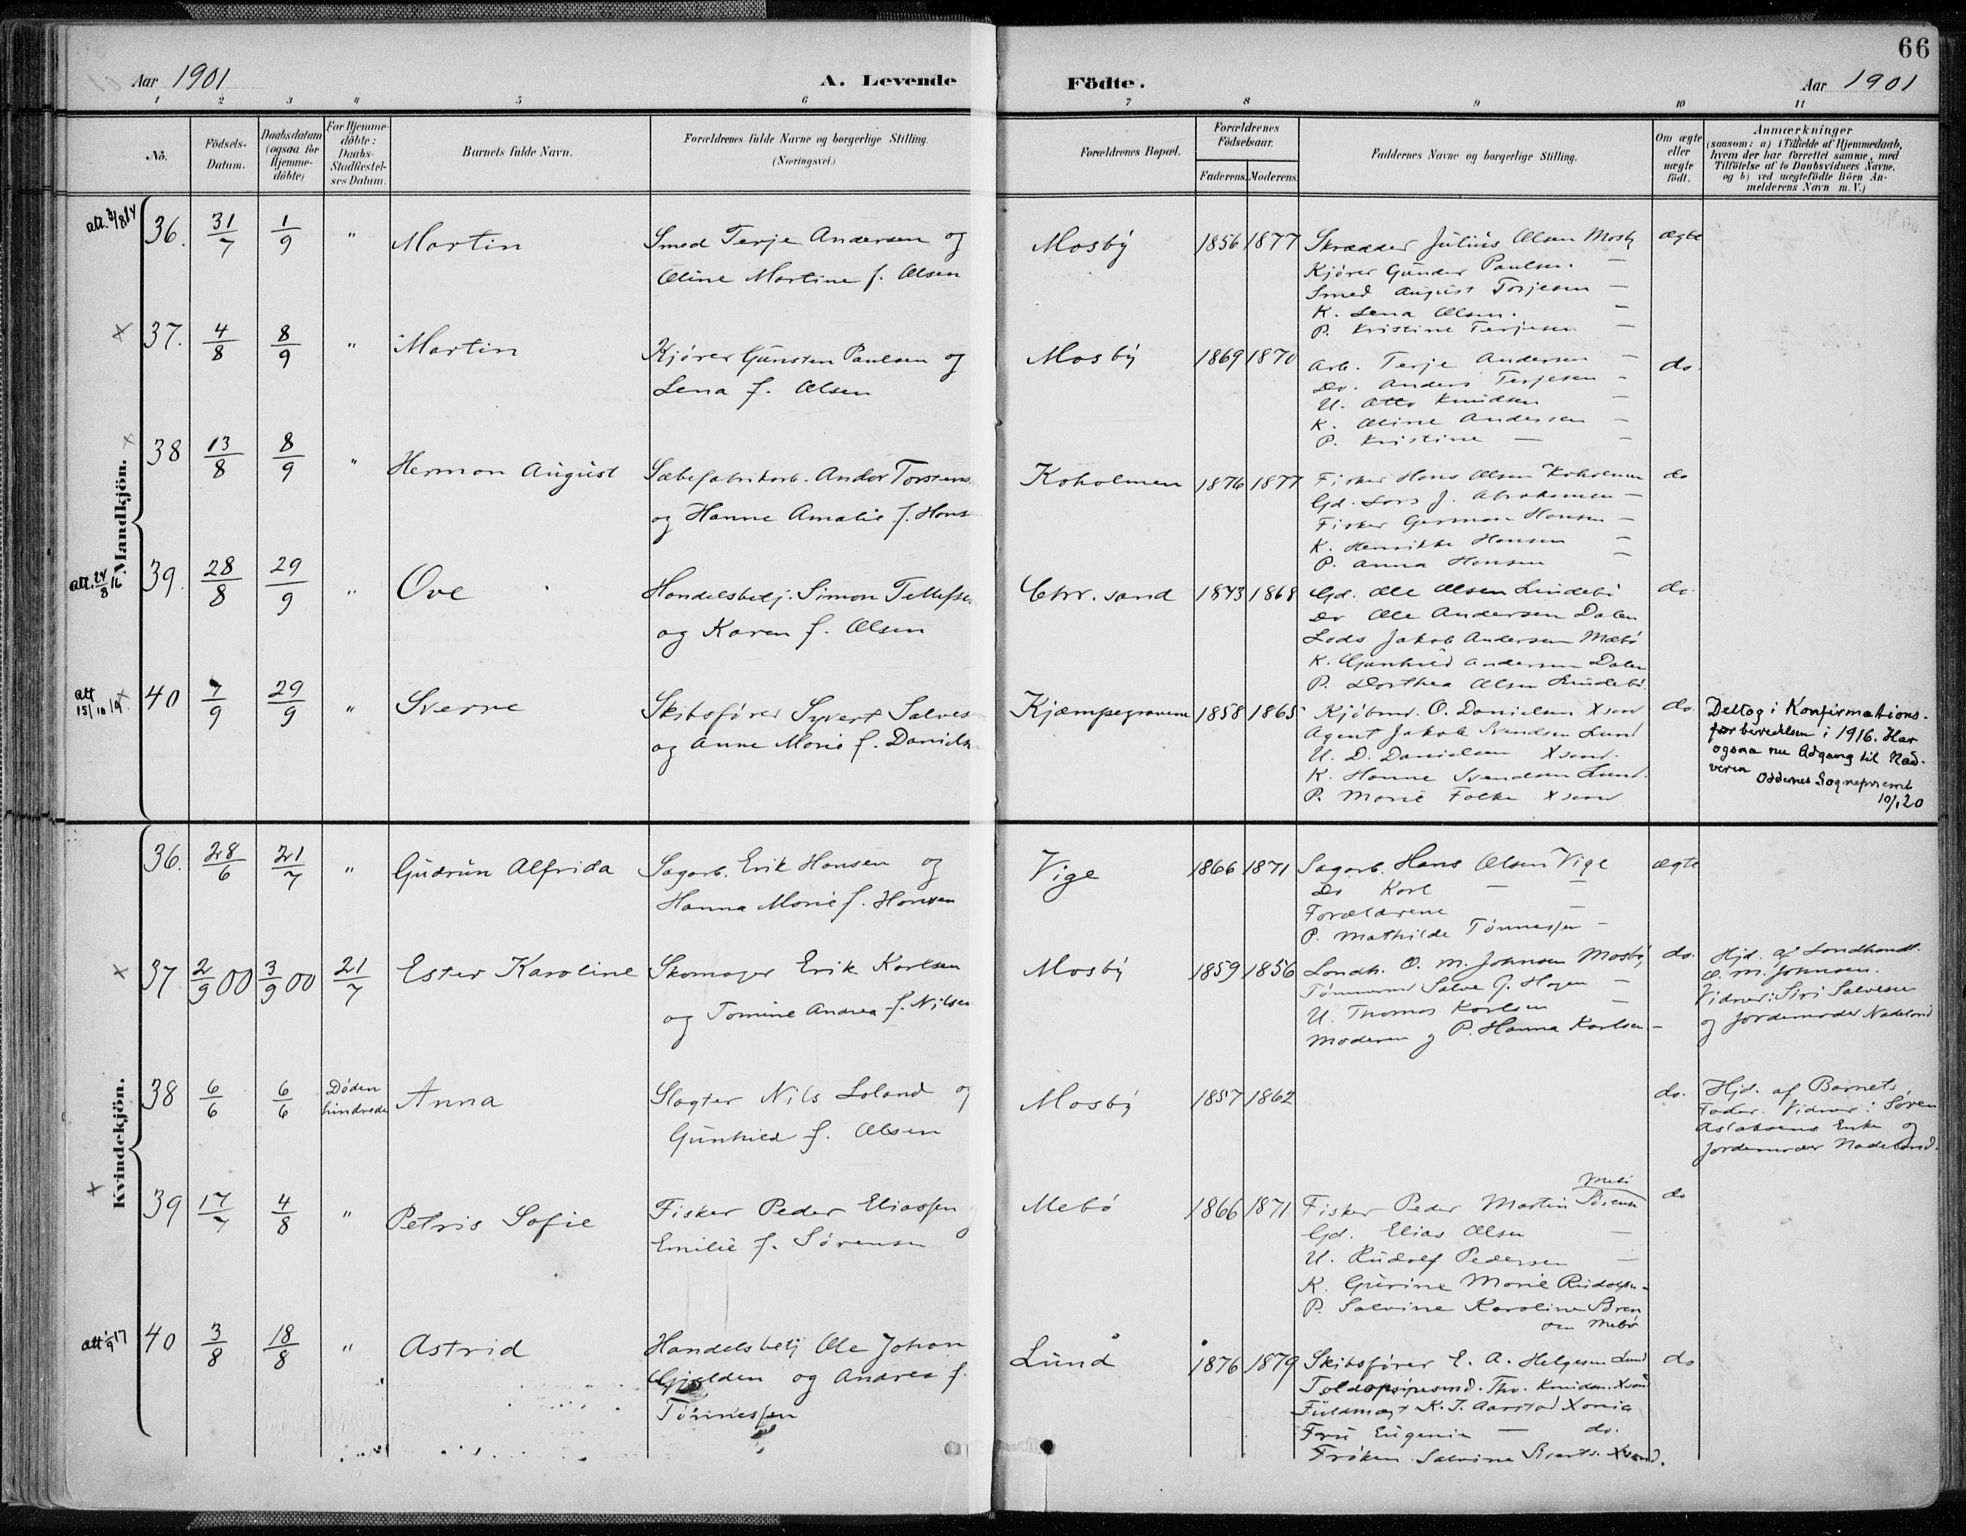 66
Aar 1901 A. Levende Födte. Aar 1901
1 2 3 4 5 6 7 8 9 10 11
No. Födsels-Datum. Daabsdatum (ogsaa for Hjemmedöbte) For Hjemmedöbte: Daabs-Stadfæstelses Datum. Barnets fulde Navn. Forældrenes fulde Navne og borgerlige Stilling. (Næringsvei.) Forældrenes Bopæl. Forældrenes Födselsaar. Faderens. Moderens. Faddernes Navne og borgerlige Stilling. Om ægte eller uægte födt. Anmærkninger (saasom: a) i Tilfælde af Hjemmedaab, hvem der har forrettet samme, med Tilföielse af to Daabsvidners Navne, og b) ved uegtefödte Börn Anmelderens Navn m. V.)
Mandkjön.
att. 3/8 14 36. 31/7 1/9 " Martin Smed Terje Andersen og Mosby 1856 1877 Skrædder Julius Olsen Mosby ægte
Oline Martine f. Olsen Kjörer Gunder Paulsen —
Smed August Terjesen —
K. Lena Olsen. —
P. Kristine Terjesen —
× 37. 4/8 8/9 " Martin Kjörer Gunsten Paulsen og Mosby 1869 1870 Arb. Terje Andersen — do.
Lena f. Olsen Do. Anders Terjesen -
U. Otto Knudsen —
K. Oline Andersen —
P. Kristine — —
× 38 13/8 8/9 " Herman August Sæbefabrikarb. Andor Torstens Koholmen 1876 1877 Fisker Hans Olsen Koholmen do
og Hanne Amalie f. Hans Gd. Lars J. Abrahamsen —
Fisker German Hansen —
K. Henrikke Hansen —
P. Anna Hansen —
att. 24/8 16 39. 28/8 29/9 " Ove Handelsbetj. Simon Tellefse Chr.sand 1873 1868 Gd. Ole Olsen Lindebö do.
og Karen f. Olsen Do Ole Andersen Dalen
Lods Jakob Andersen Mæbö
K. Gunhild Andersen Dalen
P. Dorthea Olsen Lindebö.
att 15/10 19 × 40 7/9 29/9 " Sverre Skibsförer Syvert Salves Kjæmpegravene 1858 1865 Kjöbmd. O. Danielsen Xsand do. Deltog i Konfirmations-
og Anne Marie f. Daniels Agent Jakob Svendsen Lund forberedelsen i 1916. Har
U. D. Danielsen Xsand. ogsaa nu Adgang til Nad-
K. Hanne Svendsen Lund. veren Oddernes Sogneprestemb
P. Marie Falke Xsand 10/1 20
Kvindekjön.
36. 28/6 21/7 " Gudrun Alfrida Sagarb. Erik Hansen og Vige 1866 1871 Sagarb. Hans Olsen Vige ægte
Hanna Marie f. Hansen Do Karl — —
Forældrene —
P. Mathilde Tönnessen —
× 37 2/9 00 3/9 00 21/7 Ester Karoline Skomager Erik Karlsen Mosby 1859 1856 Landh. O. M. Johnsen Mosby do. Hjd. af Landhandl.
og Tomine Andrea f. Nilsen Tömmermd Salve G. Hagen — O. M. Johnsen.
U. Thomas Karlsen — Vidner: Siri Salvesen
Moderen og P. Hanna Karlsen — og Jordemoder Nadeland
38 6/6 6/6 Döden hindrede Anna Slagter Nils Loland og Mosby 1857 1862 do. Hjd. af Barnets
Gunhild f. Olsen Fader. Vidner: Sören
Aslaksens Enke og
Jordemoder Nadeland.
× 39 17/7 4/8 " Petris Sofie Fisker Peder Eliassen Mebö 1866 1871 Fisker Peder Martin Sörensen Mebö do
og Emilie f. Sörensen Gd. Elias Olsen —
U. Rudolf Pedersen —
K. Gurine Marie Rudolfsen -
P. Salvine Karoline Sören
sen Mebö
att 1/9 17 40 3/8 18/8 " Astrid Handelsbetj Ole Johan Lund 1876 1879 Skibsförer E. A. Helgesen Lund do
Gjelden og Andrea f. Toldopsynsmd. Tho. Knudsen Xsand
Tönnessen Fuldmægt K. T. Aarstad Xania
Fru Eugenie — do.
Fröken Salvine Xsand.